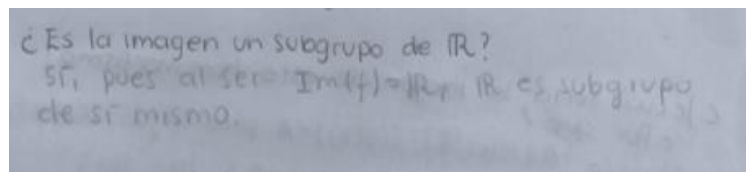 ¿Es la imagen un subgrupo de ℝ?
Sí, pues al ser Im(f)=ℝ, ℝ es subgrupo
de sí mismo.